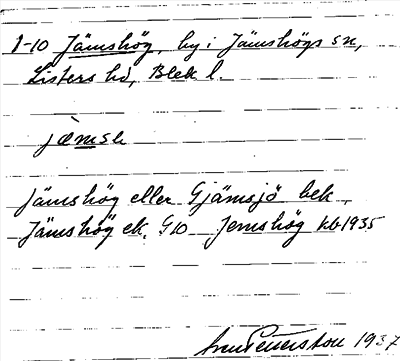 1-10 Jämshög, by i Jämshögs sn,
Listers hd, Blek l.
jæ̀msh
Jämshög eller Gjämsjö bek,
Jämshög ek. G10 Jemshög kb 1935
1937